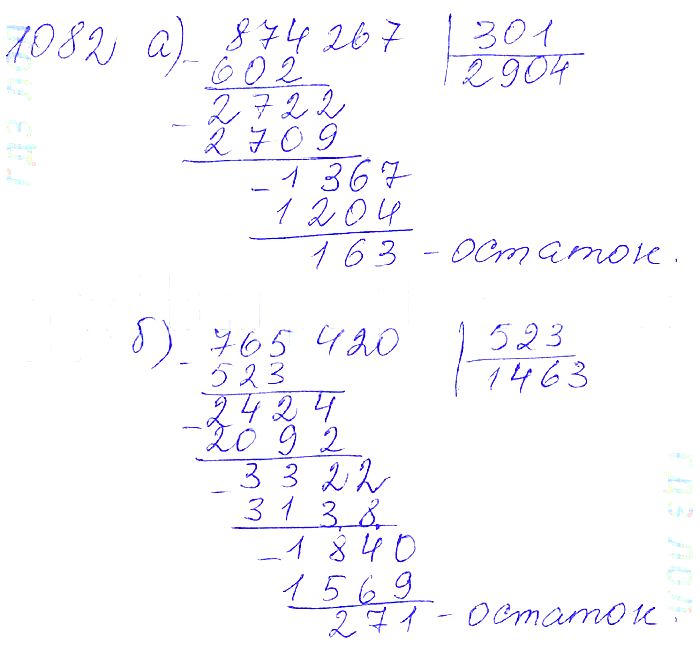 1082 а) 874 267 301
602 2904
2722
2709
1367
1204
163 - остаток.
б) 765 420 523
523 1463
2424
2092
3322
3138
1840
1569
271 - остаток.